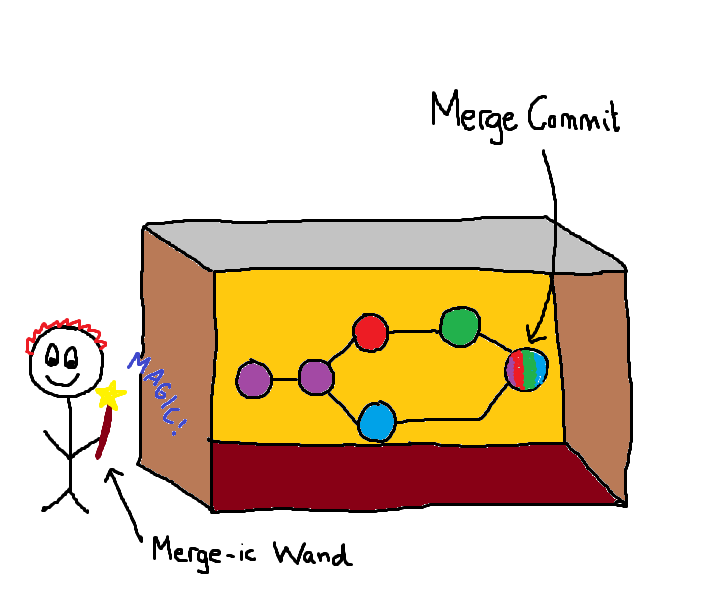 Merge Commit
MAGIC!
Merge-ic Wand